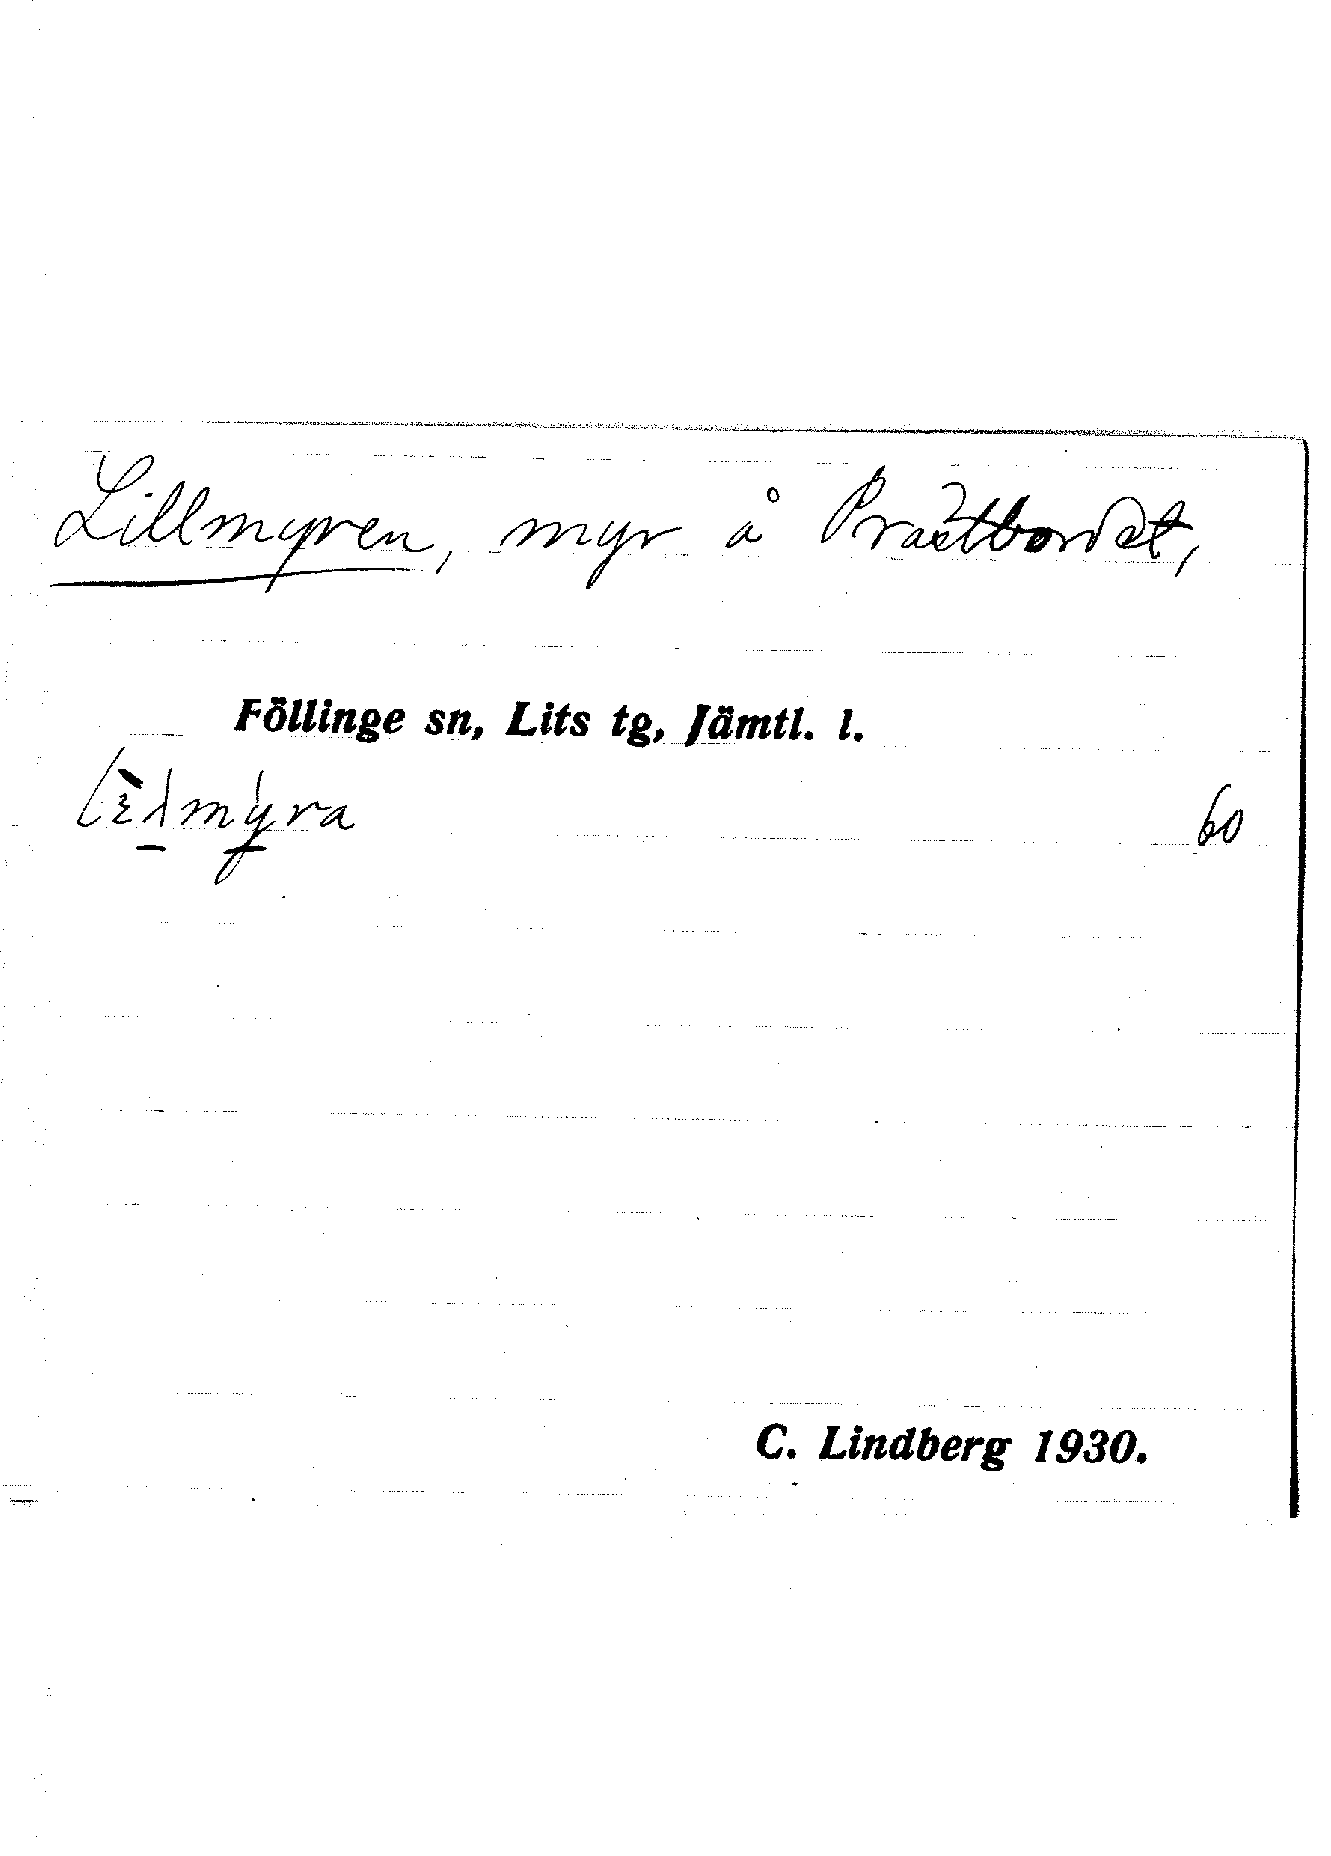 Lillmyren, myr å Prästbordet,
Föllinge sn, Lits tg, Jämtl. l.
60
C. Lindberg 1930.